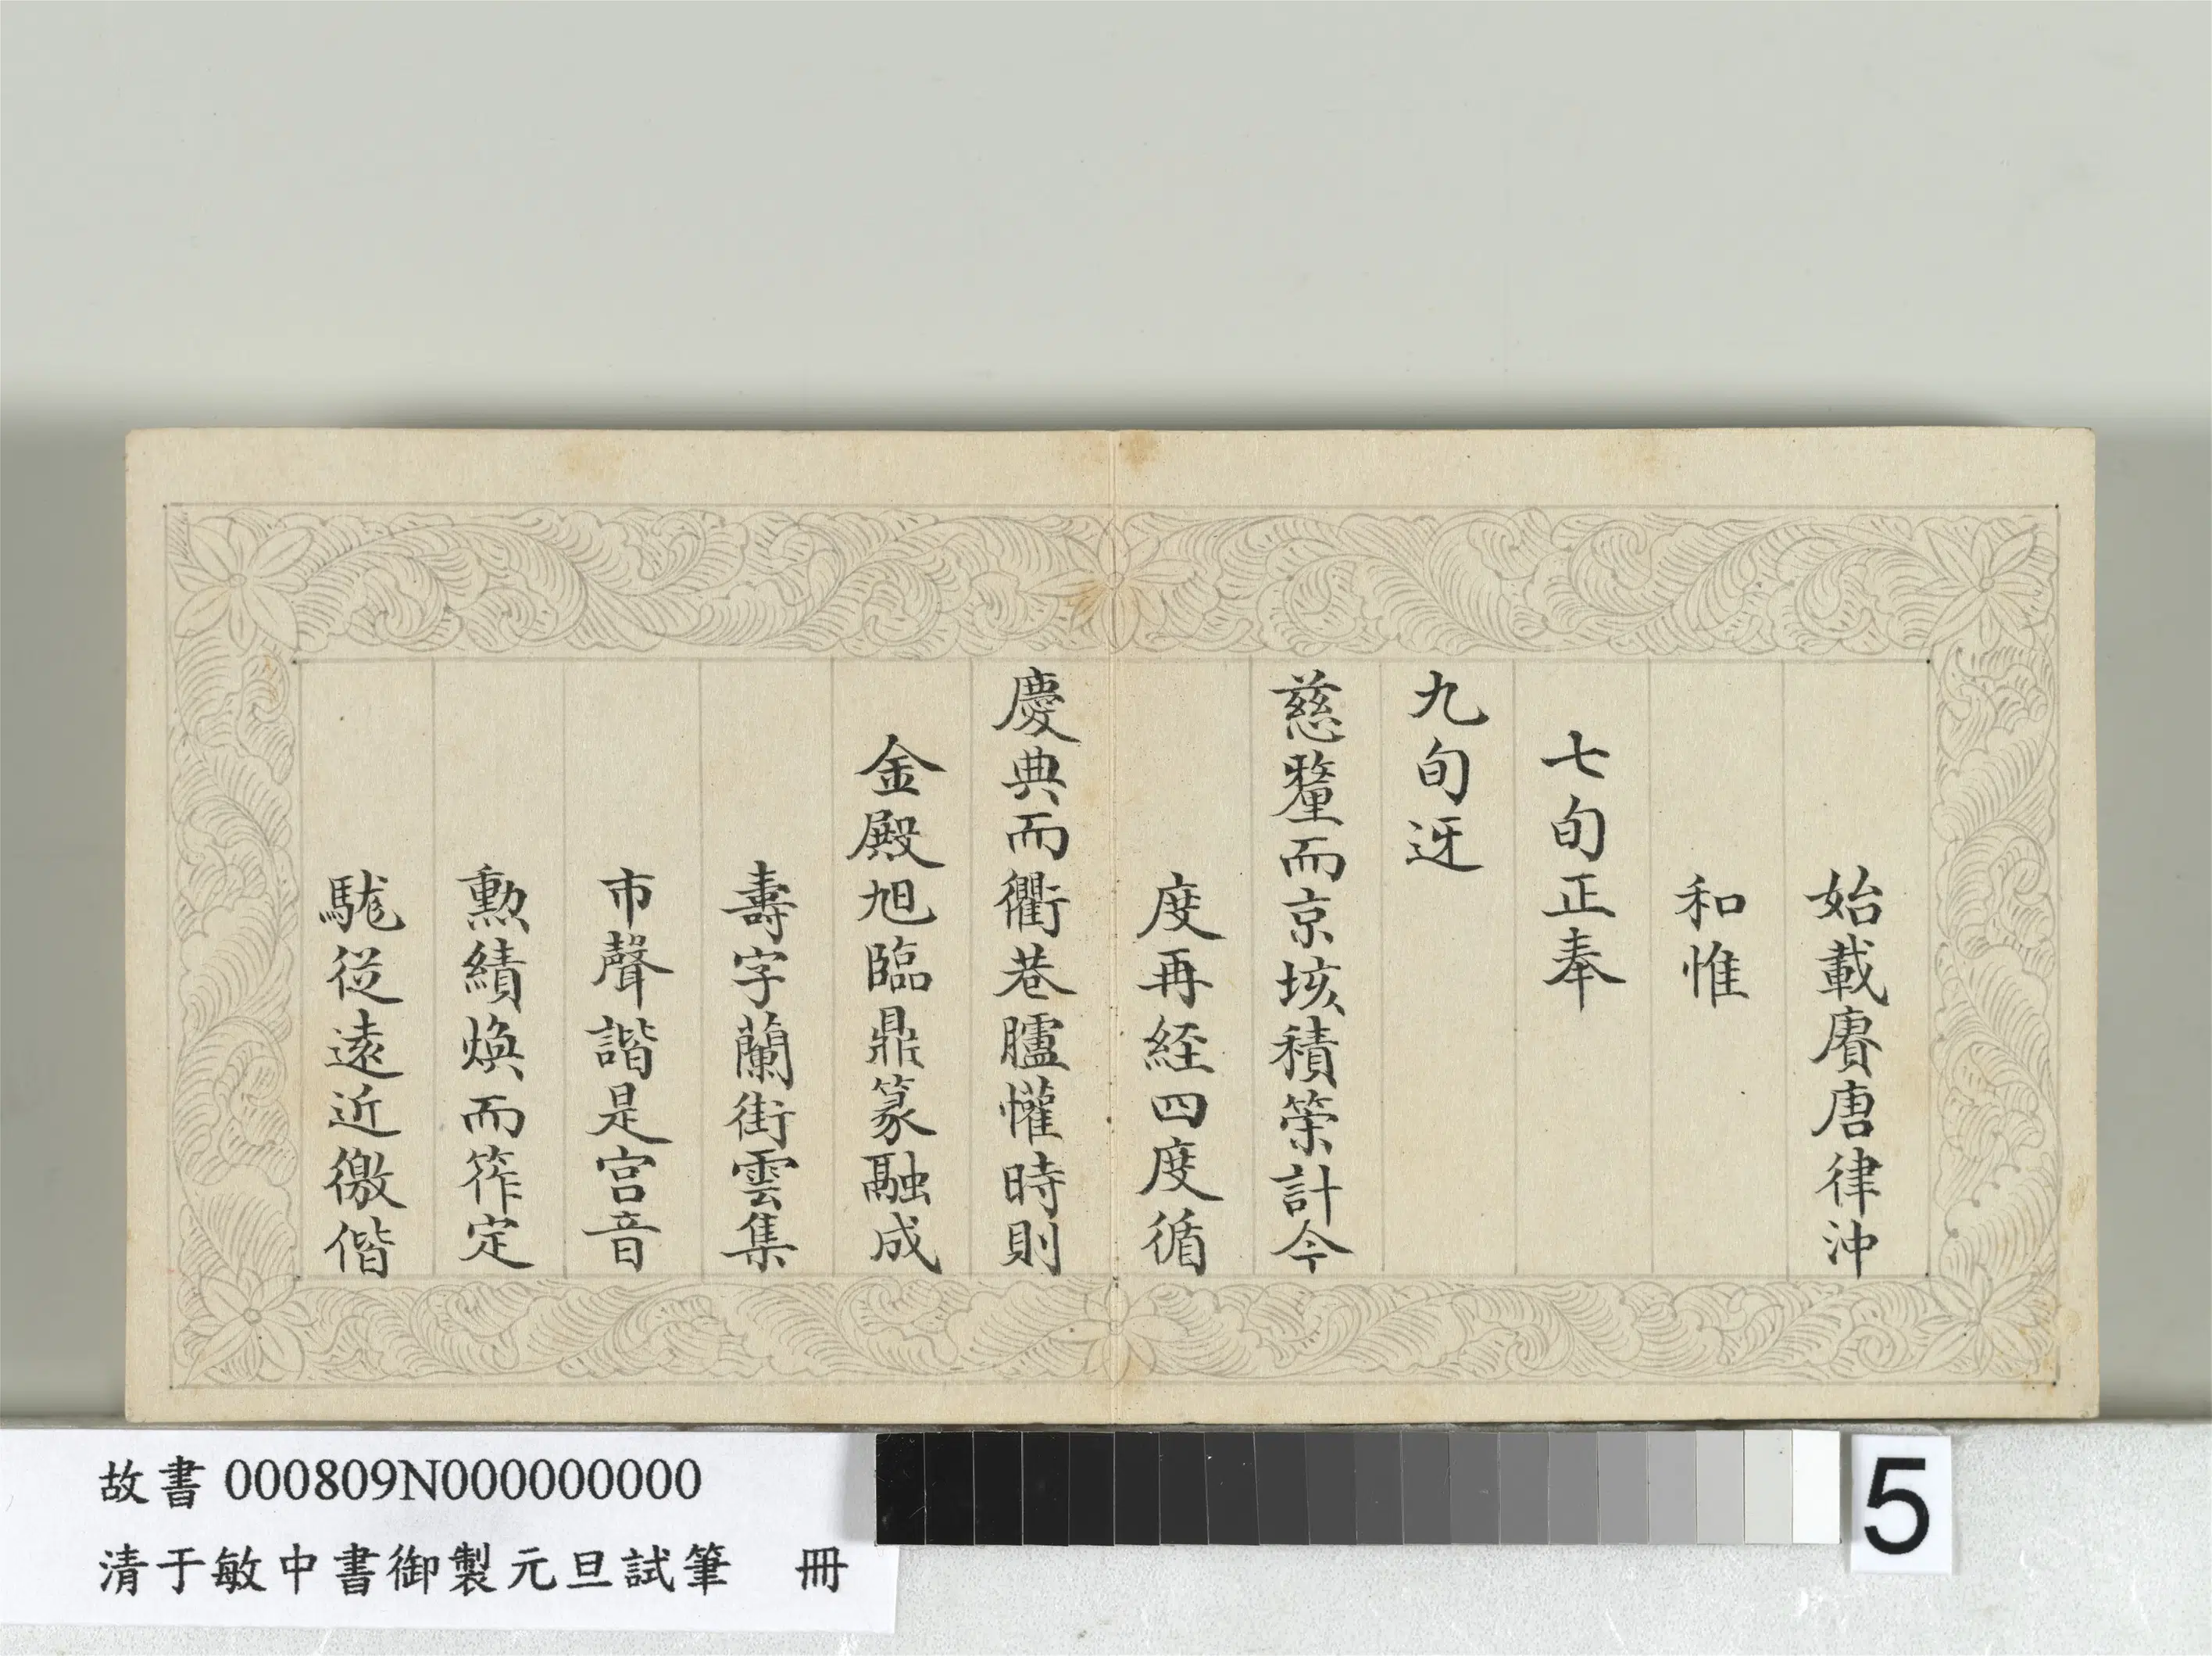 始載賡唐律沖
和惟
七旬正奉
九旬迓
慈釐而京垓積筞計今
度再経四度循
慶典而衢巷臚懽時則
金殿旭臨鼎篆融成
壽字蘭街雲集
市聲諧是宮音
勲績煥而筰定
駹從遠近徼偕
故書000809N000000000
清于敏中書御製元旦試筆 冊
5